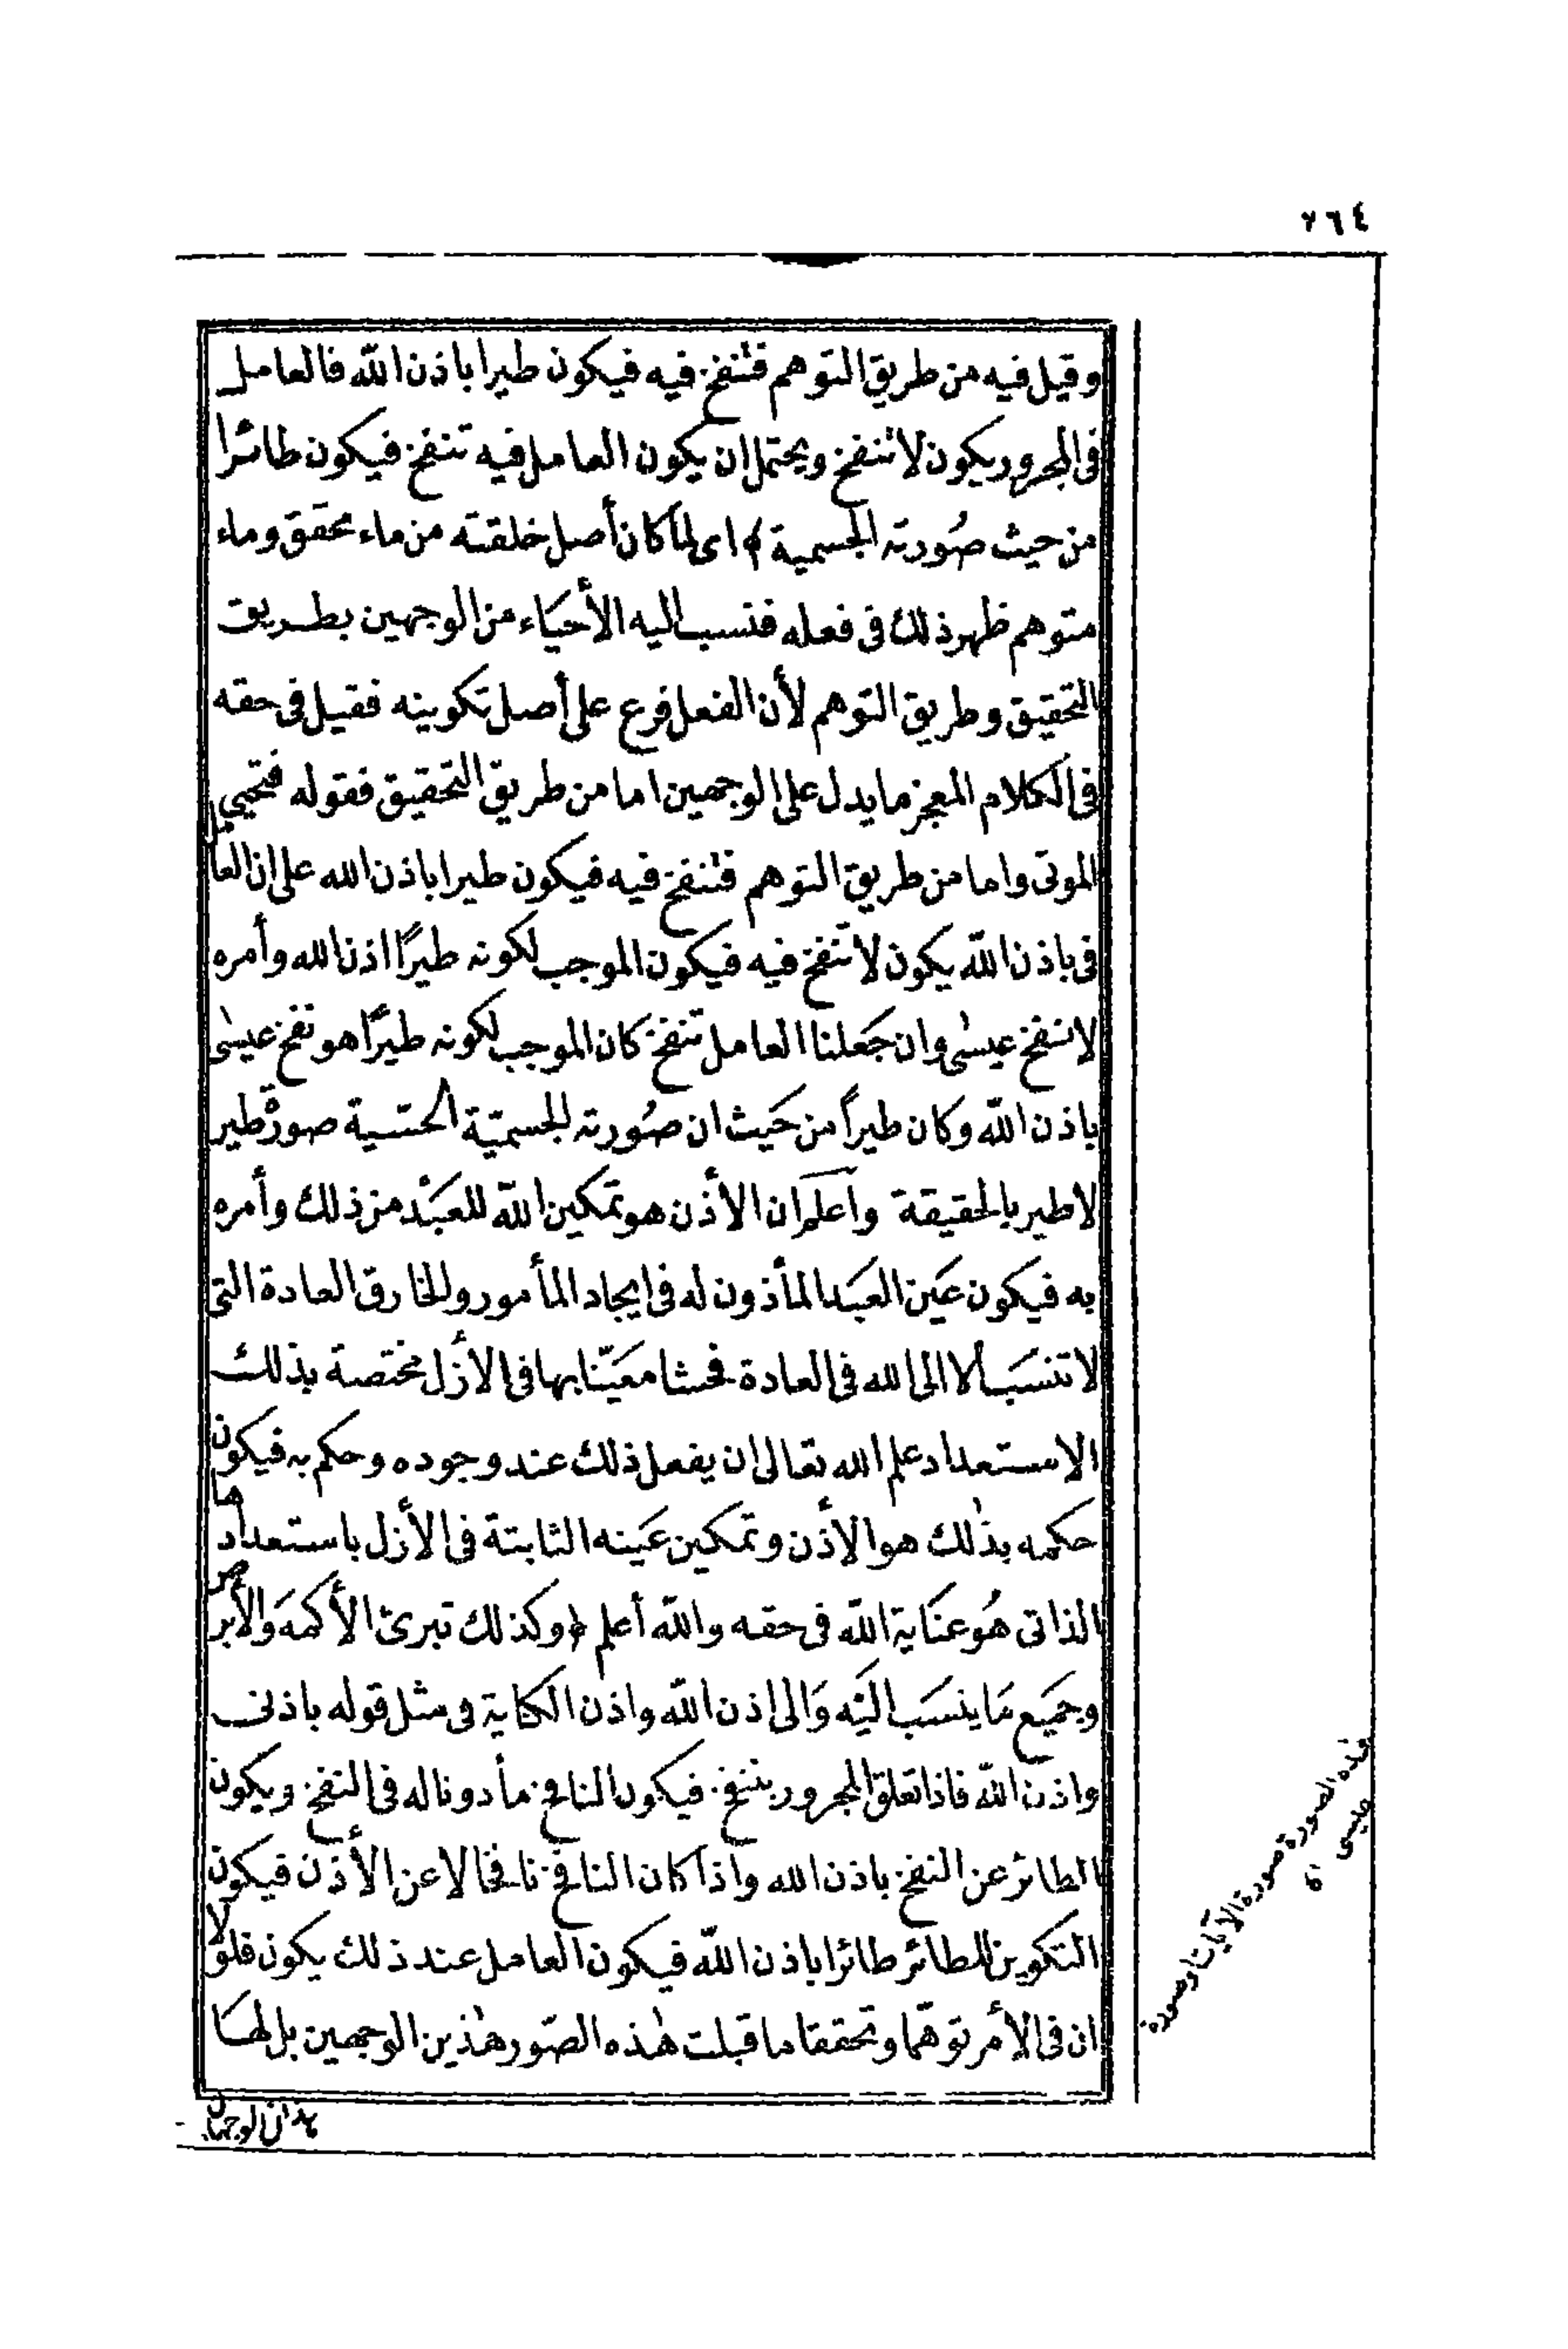 ٧٦٤
وقيل فيه من طريق التوهم فتنفخ فيه فيكون طيرا باذن الله فالعامل
فى المجرور يكون لا تنفخ ويحتمل ان يكون العامل فيه تنفخ فيكون طائرا
من حيث صورته الجسمية ﴾ اى لما كان أصل خلقته من ماء محقق وماء
متوهم ظهر ذلك فى فعله فنسب اليه الأحياء من الوجهين بطريق
التحقيق وطريق التوهم لأن الفعل فرع على أصل تكوينه فقيل فى حقه
فى الكلام المعجز ما يدل على الوجهين اما من طريق التحقيق فقوله فتحيي
الموتى واما من طريق التوهم فتنفخ فيه فيكون طيرا باذن الله على ان العامل
فى باذن الله يكون لا تنفخ فيه فيكون الموجب لكونه طيرًا اذن الله وأمره
لا نفخ عيسى وان جَعلنا العامل تنفخ كان الموجب لكونه طيرًا هو نفخ عيسى
باذن الله وكان طيراً من حَيث ان صُورته الجسميّة الحسّية صورة طير
لا طير بالحقيقة واعلم ان الأذن هو تمكين الله للعَبْد من ذلك وأمره
به فيكون عَين العَبَد المأذون له فى ايجاد المأمور والخارق العادة التى
لا تنسَب الا الى الله فى العادة مخشا معَيّنا بها فى الأزل مختصة بذلك
الاستعداد علم الله تعالى ان يفعل ذلك عند وجوده وحكم به فيكون
حكمه بذٰلك هو الأذن وتمكين عَينه الثابتة فى الأزل باستعدادها
الذاتى هُو عنَاية الله فى حقه والله أعلم ﴿ وكذلك تبرئ الأكمهَ والأبرص
وجمَيع مَا ينسَب اليَه وَالى إذن الله واذن الكناية فى مثل قوله باذنى
واذن الله فاذا تعلق المجرور بتنفخ فيكون النافخ مأذونا له فى النفخ ويكون
الطائر عن النفخ باذن الله واذا كان النافخ نافخا لا عن الأذن فيكون
التكوين للطائر طائرا باذن الله فيكون العامل عند ذلك يكون فلولا
ان فى الأمر توهّما وتحققا ما قبلت هٰذه الصّور هٰذين الوجهين بل لهَا
هذان الوجهان
هذه الصورة صورة الآيات وصورة
عيسى